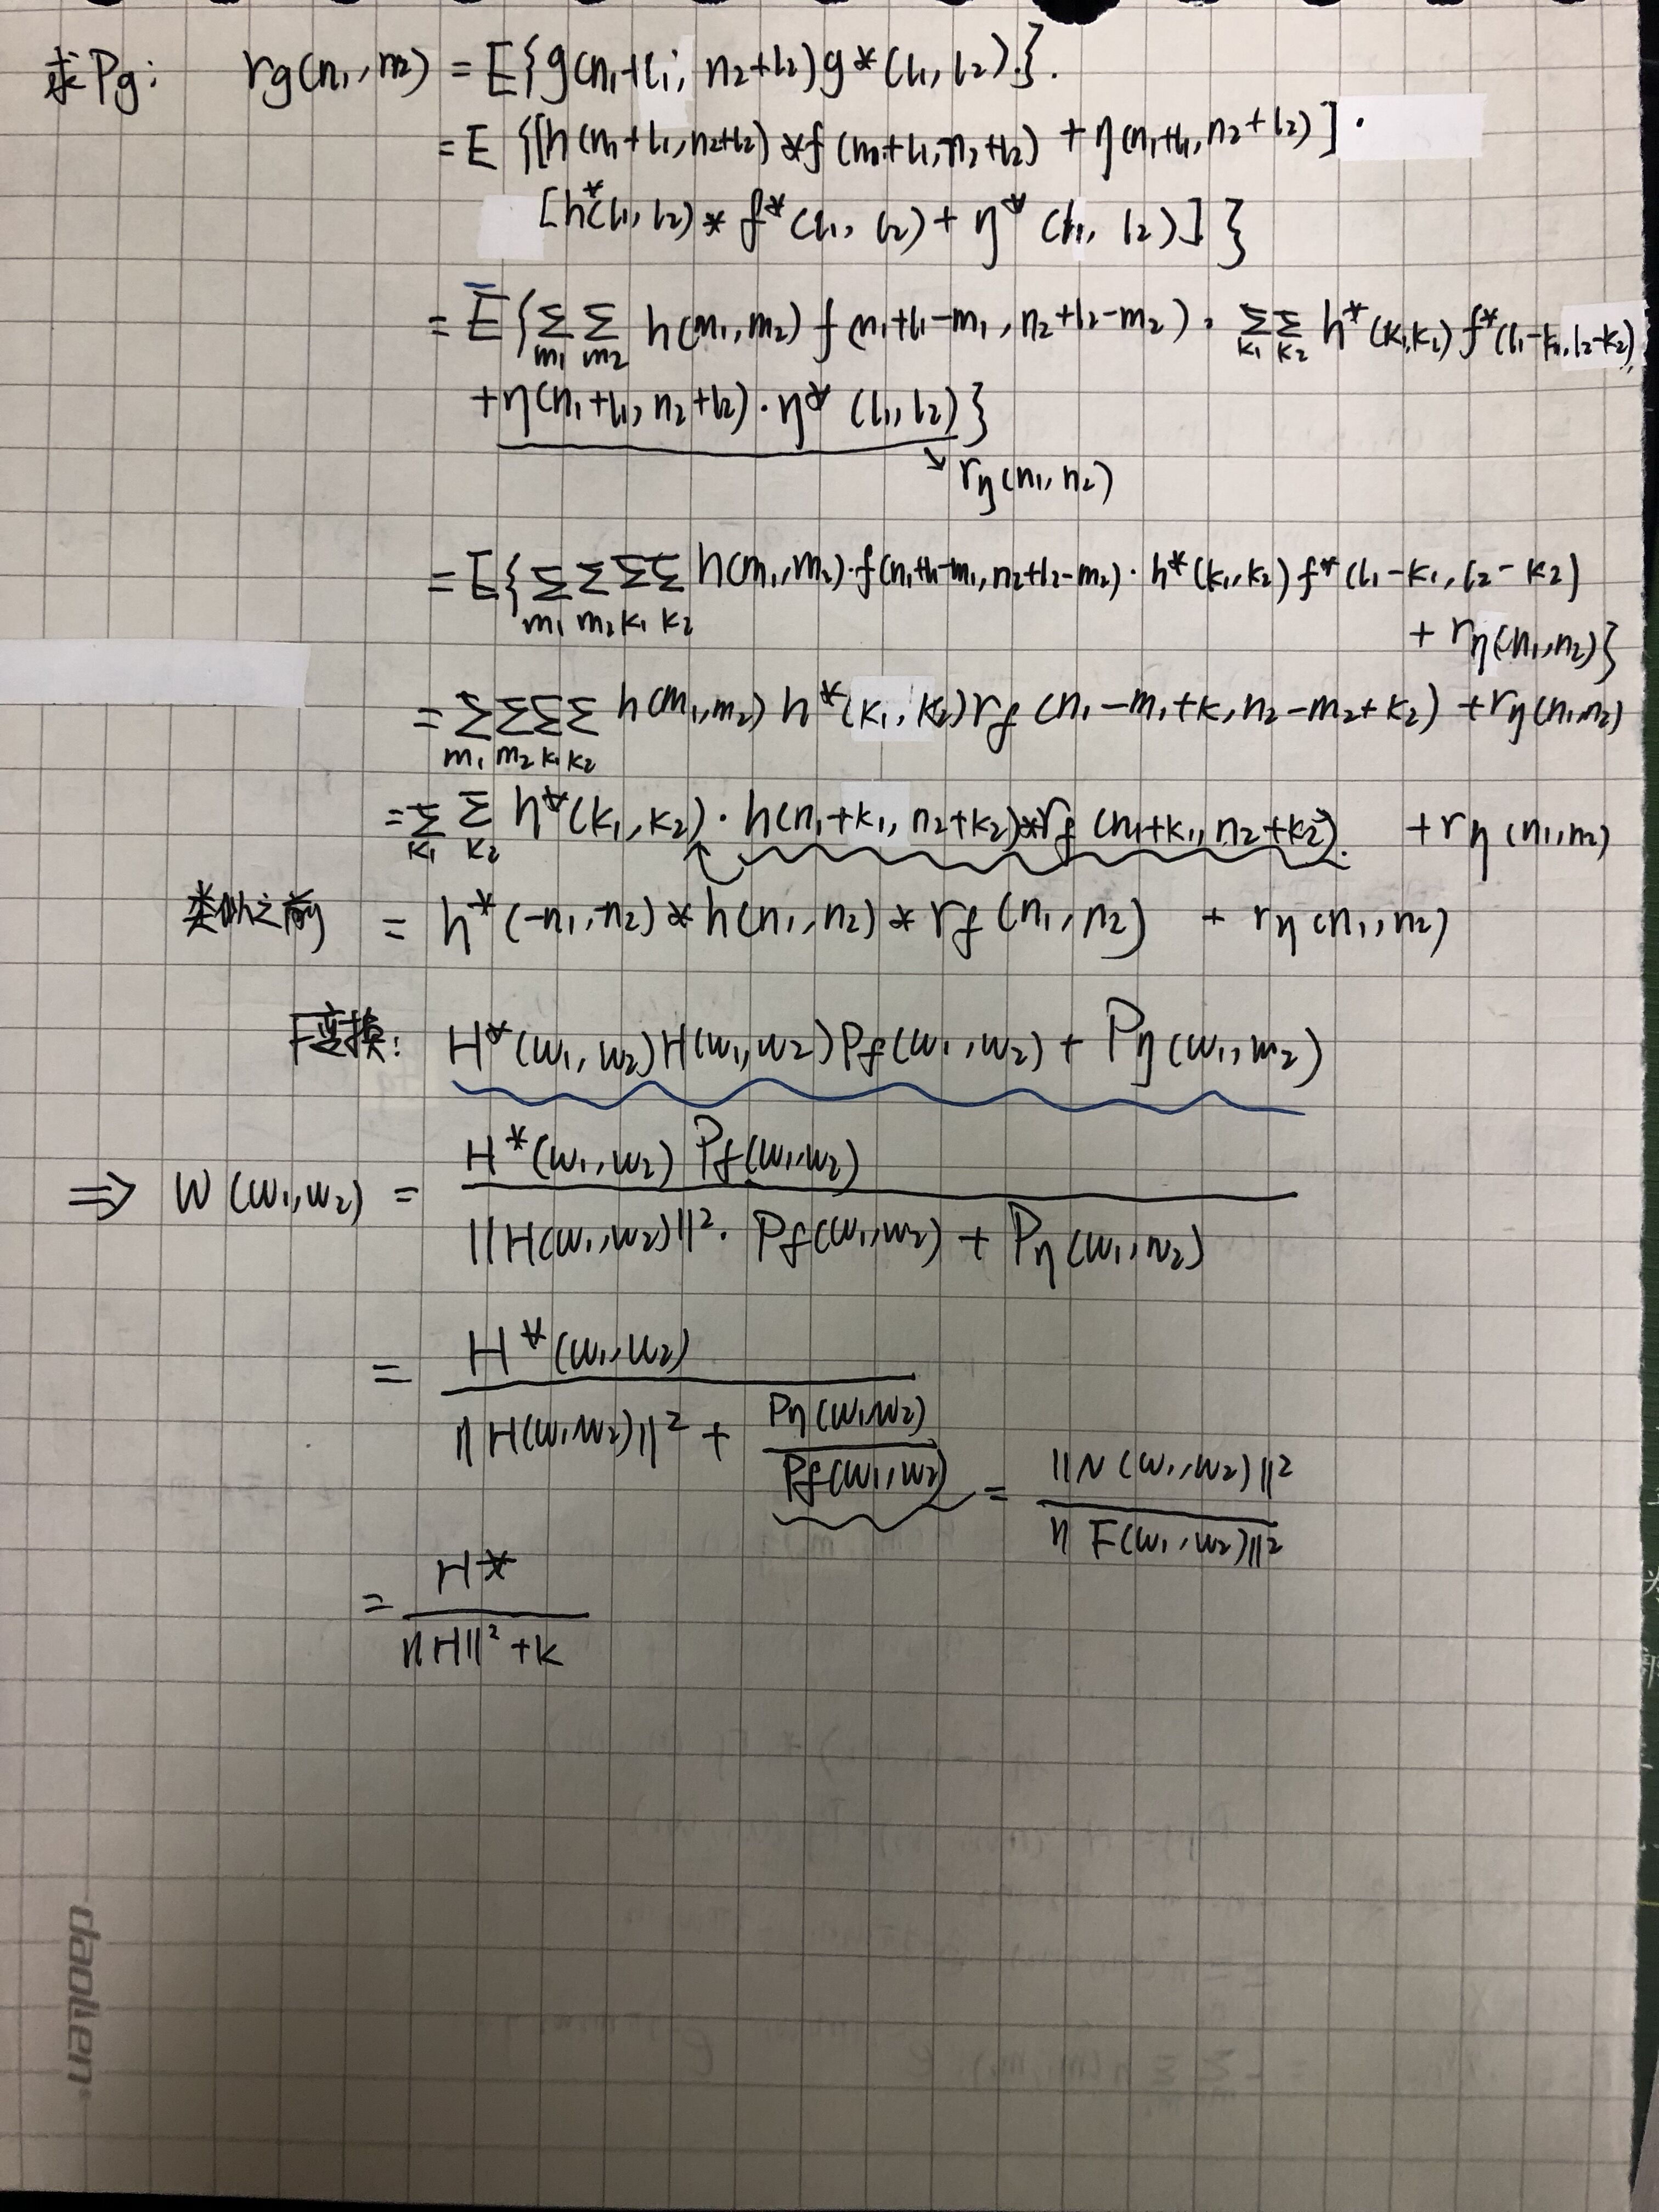 求Pg: rg(n1,n2) = E{g(n1+l1, n2+l2)g*(l1,l2).}.
= E {[h(n1+l1,n2+l2) * f(n1+l1,n2+l2) + η(n1+l1,n2+l2)] ·
[h*(l1,l2) * f*(l1,l2) + η*(l1,l2)]}
= E{∑m1 ∑m2 h(m1,m2) f(n1+l1-m1, n2+l2-m2) · ∑k1 ∑k2 h*(k1,k2) f*(l1-k1,l2-k2)
+η(n1+l1, n2+l2)·η*(l1,l2)}
↘ rη(n1,n2)
= E{∑m1 ∑m2 ∑k1 ∑k2 h(m1,m2)·f(n1+l1-m1,n2+l2-m2)·h*(k1,k2) f*(l1-k1, l2-k2)
+ rη(n1,n2)}
= ∑m1 ∑m2 ∑k1 ∑k2 h(m1,m2) h*(k1,k2) rf(n1-m1+k, n2-m2+k2) + rη(n1,n2)
= ∑k1 ∑k2 h*(k1,k2) · h(n1+k1, n2+k2)*rf(n1+k1, n2+k2). + rη(n1,n2)
类似之前 = h*(-n1,-n2) * h(n1,n2) * rf(n1,n2) + rη(n1,n2)
F变换: H*(w1,w2)H(w1,w2)Pf(w1,w2) + Pη(w1,w2)
⇒ W(w1,w2) = H*(w1,w2) Pf(w1,w2)
||H(w1,w2)||². Pf(w1,w2) + Pη(w1,w2)
= H*(w1,w2)
||H(w1,w2)||² + Pη(w1,w2) / Pf(w1,w2) = ||N(w1,w2)||² / ||F(w1,w2)||²
= H*
||H||² + k
daolien